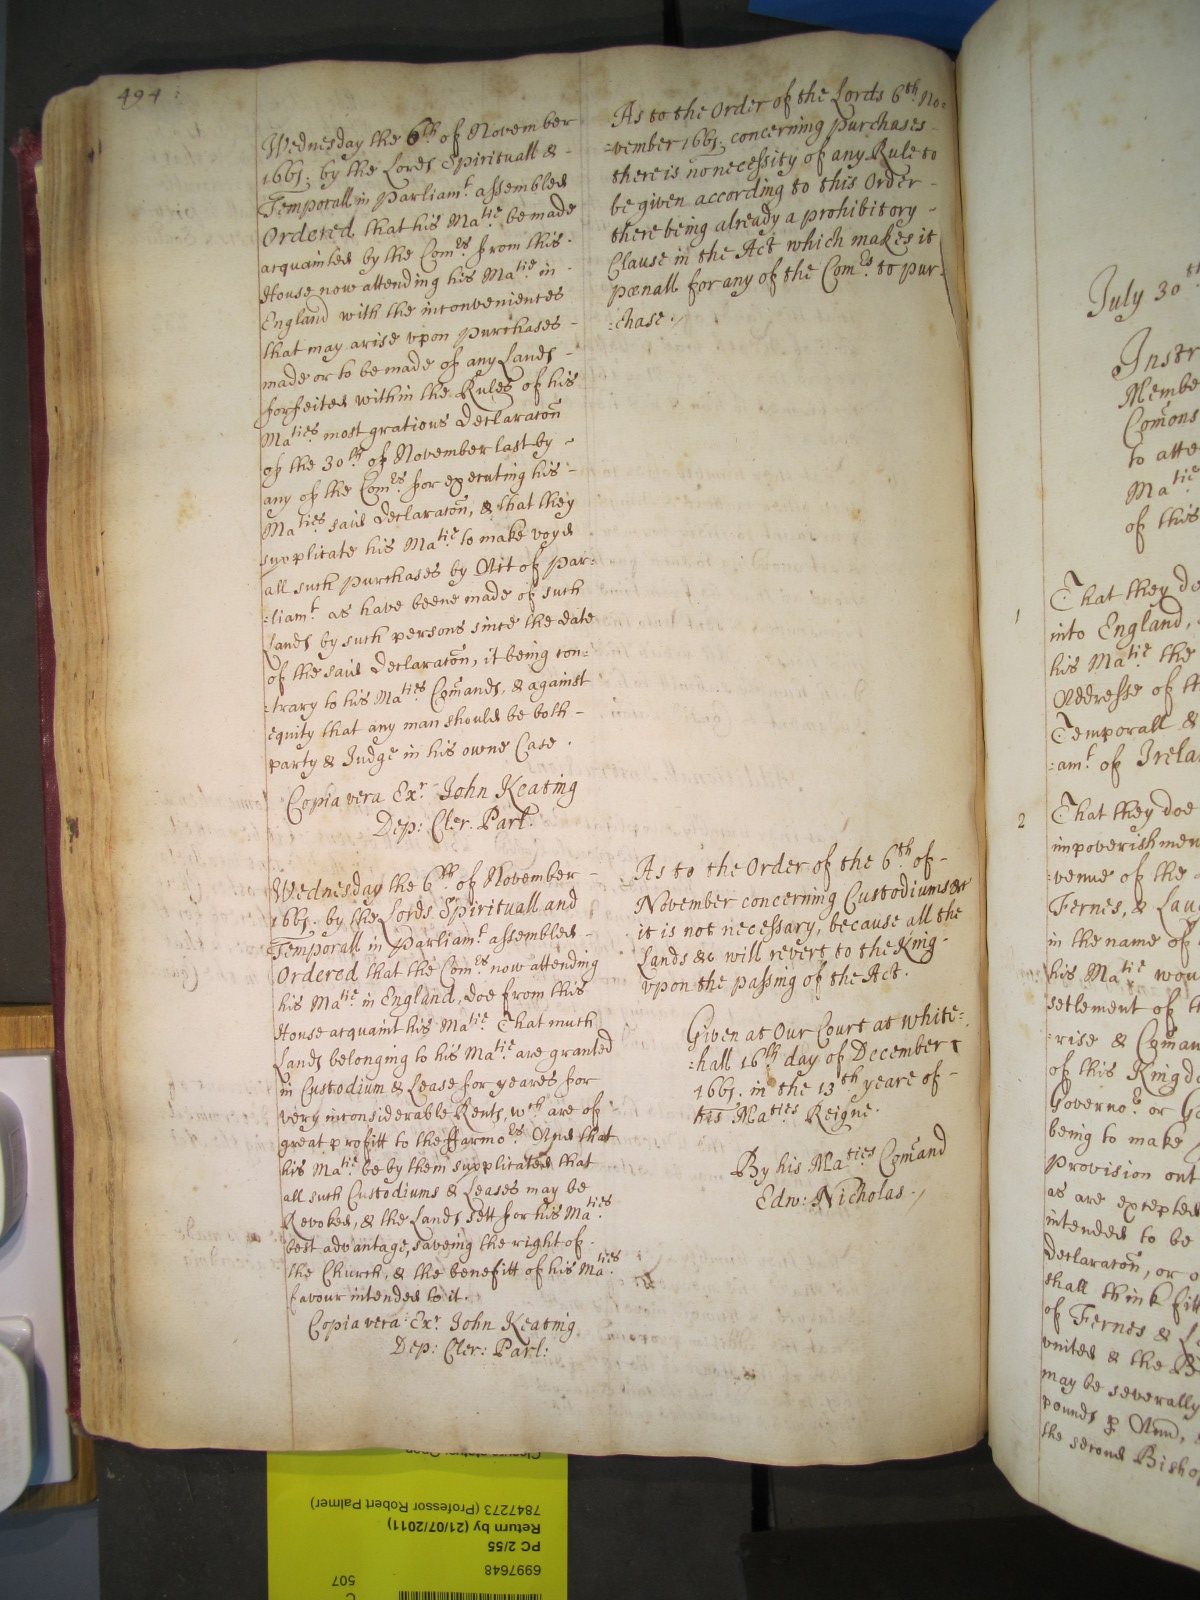 494:
Wednesday the 6th of November
1661. by the Lords Spirituall & -
Temporall in Parliamt. assembled
Ordered that his Matie. be made
acquainted by the Com:rs from this -
House now attending his Matie in -
England with the inconveniences
that may arise vpon purchases -
made or to be made of any Lands -
forfeited within the Rules of his
Maties most gratious Declaraton
of the 30th. of November last by -
any of the Com:rs for executing his -
Maties said Declaraton, & that they
supplicate his Matie. to make voyd
all such purchases by Act of Par=
:liamt. as have beene made of such
Lands by such persons since the date
of the said Declaraton, it being con=
:trary to his Maties Comands, & against
equity that any man should be both -
party & Judge in his owne Case.
Copia vera Exr. John Keating
Dep: Cler. Parl:
Wednesday the 6th of November -
1661. by the Lords Spirituall and
Temporall in Parliamt. assembled -
Ordered that the Com:rs now attending
his Matie. in England, doe from this
House acquaint his Matie. That much
Lands belonging to his Matie. are granted
in Custodium & Lease for yeares for
very inconsiderable Rents, wch. are of
great profitt to the ffarmors. And that
his Matie be by them supplicated that
all such Custodiums & Leases may be
Revoked, & the Lands sett for his Maties.
best advantage, saveing the right of -
the Church, & the benefitt of his Maties.
favour intended to it.
Copia vera: Exr. John Keating
Dep: Cler: Parl:
As to the Order of the Lords 6th No=
=vember 1661. concerning purchases -
there is no necessity of any Rule to
be given according to this Order -
there being already a prohibitory -
Clause in the Act which makes it
pœnall for any of the Com:rs. to pur=
:chase.
As to the Order of the 6th. of -
November concerning Custodiums &c
it is not necessary, because all the
Lands &c will revert to the King -
vpon the passing of the Act.
Given at Our Court at white=
:hall 16th day of December
1661. in the 13th yeare of -
his Maties. Reigne.
By his Maties Comand
Edw: Nicholas.
July 30th
Instr
Membe
Comons
to atte
Matie
of this
1
That they do
into England,
his Matie the
Addresse of th
Temporall &
:amt. of Irela
2
That they doe
impoverishmen
:venue of the
Fernes, &
in the name of
his Matie wou
setlement of th
:rise & Coman
of this Kingdo
Governor. or
being to make
provision out
as are excepted
intended to be
Declaraton, or o
shall think fitt
of Fernes & L
vnited & the B
may be severally
pounds p Ann,
the second Bisho
507
6997648
PC 2/55
Return by (21/07/2011)
7847273 (Professor Robert Palmer)